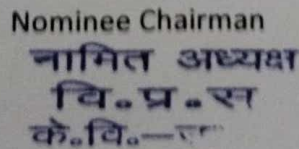 Nominee Chairman
नामित अध्यक्ष
वि.प्र.स
के.वि.—